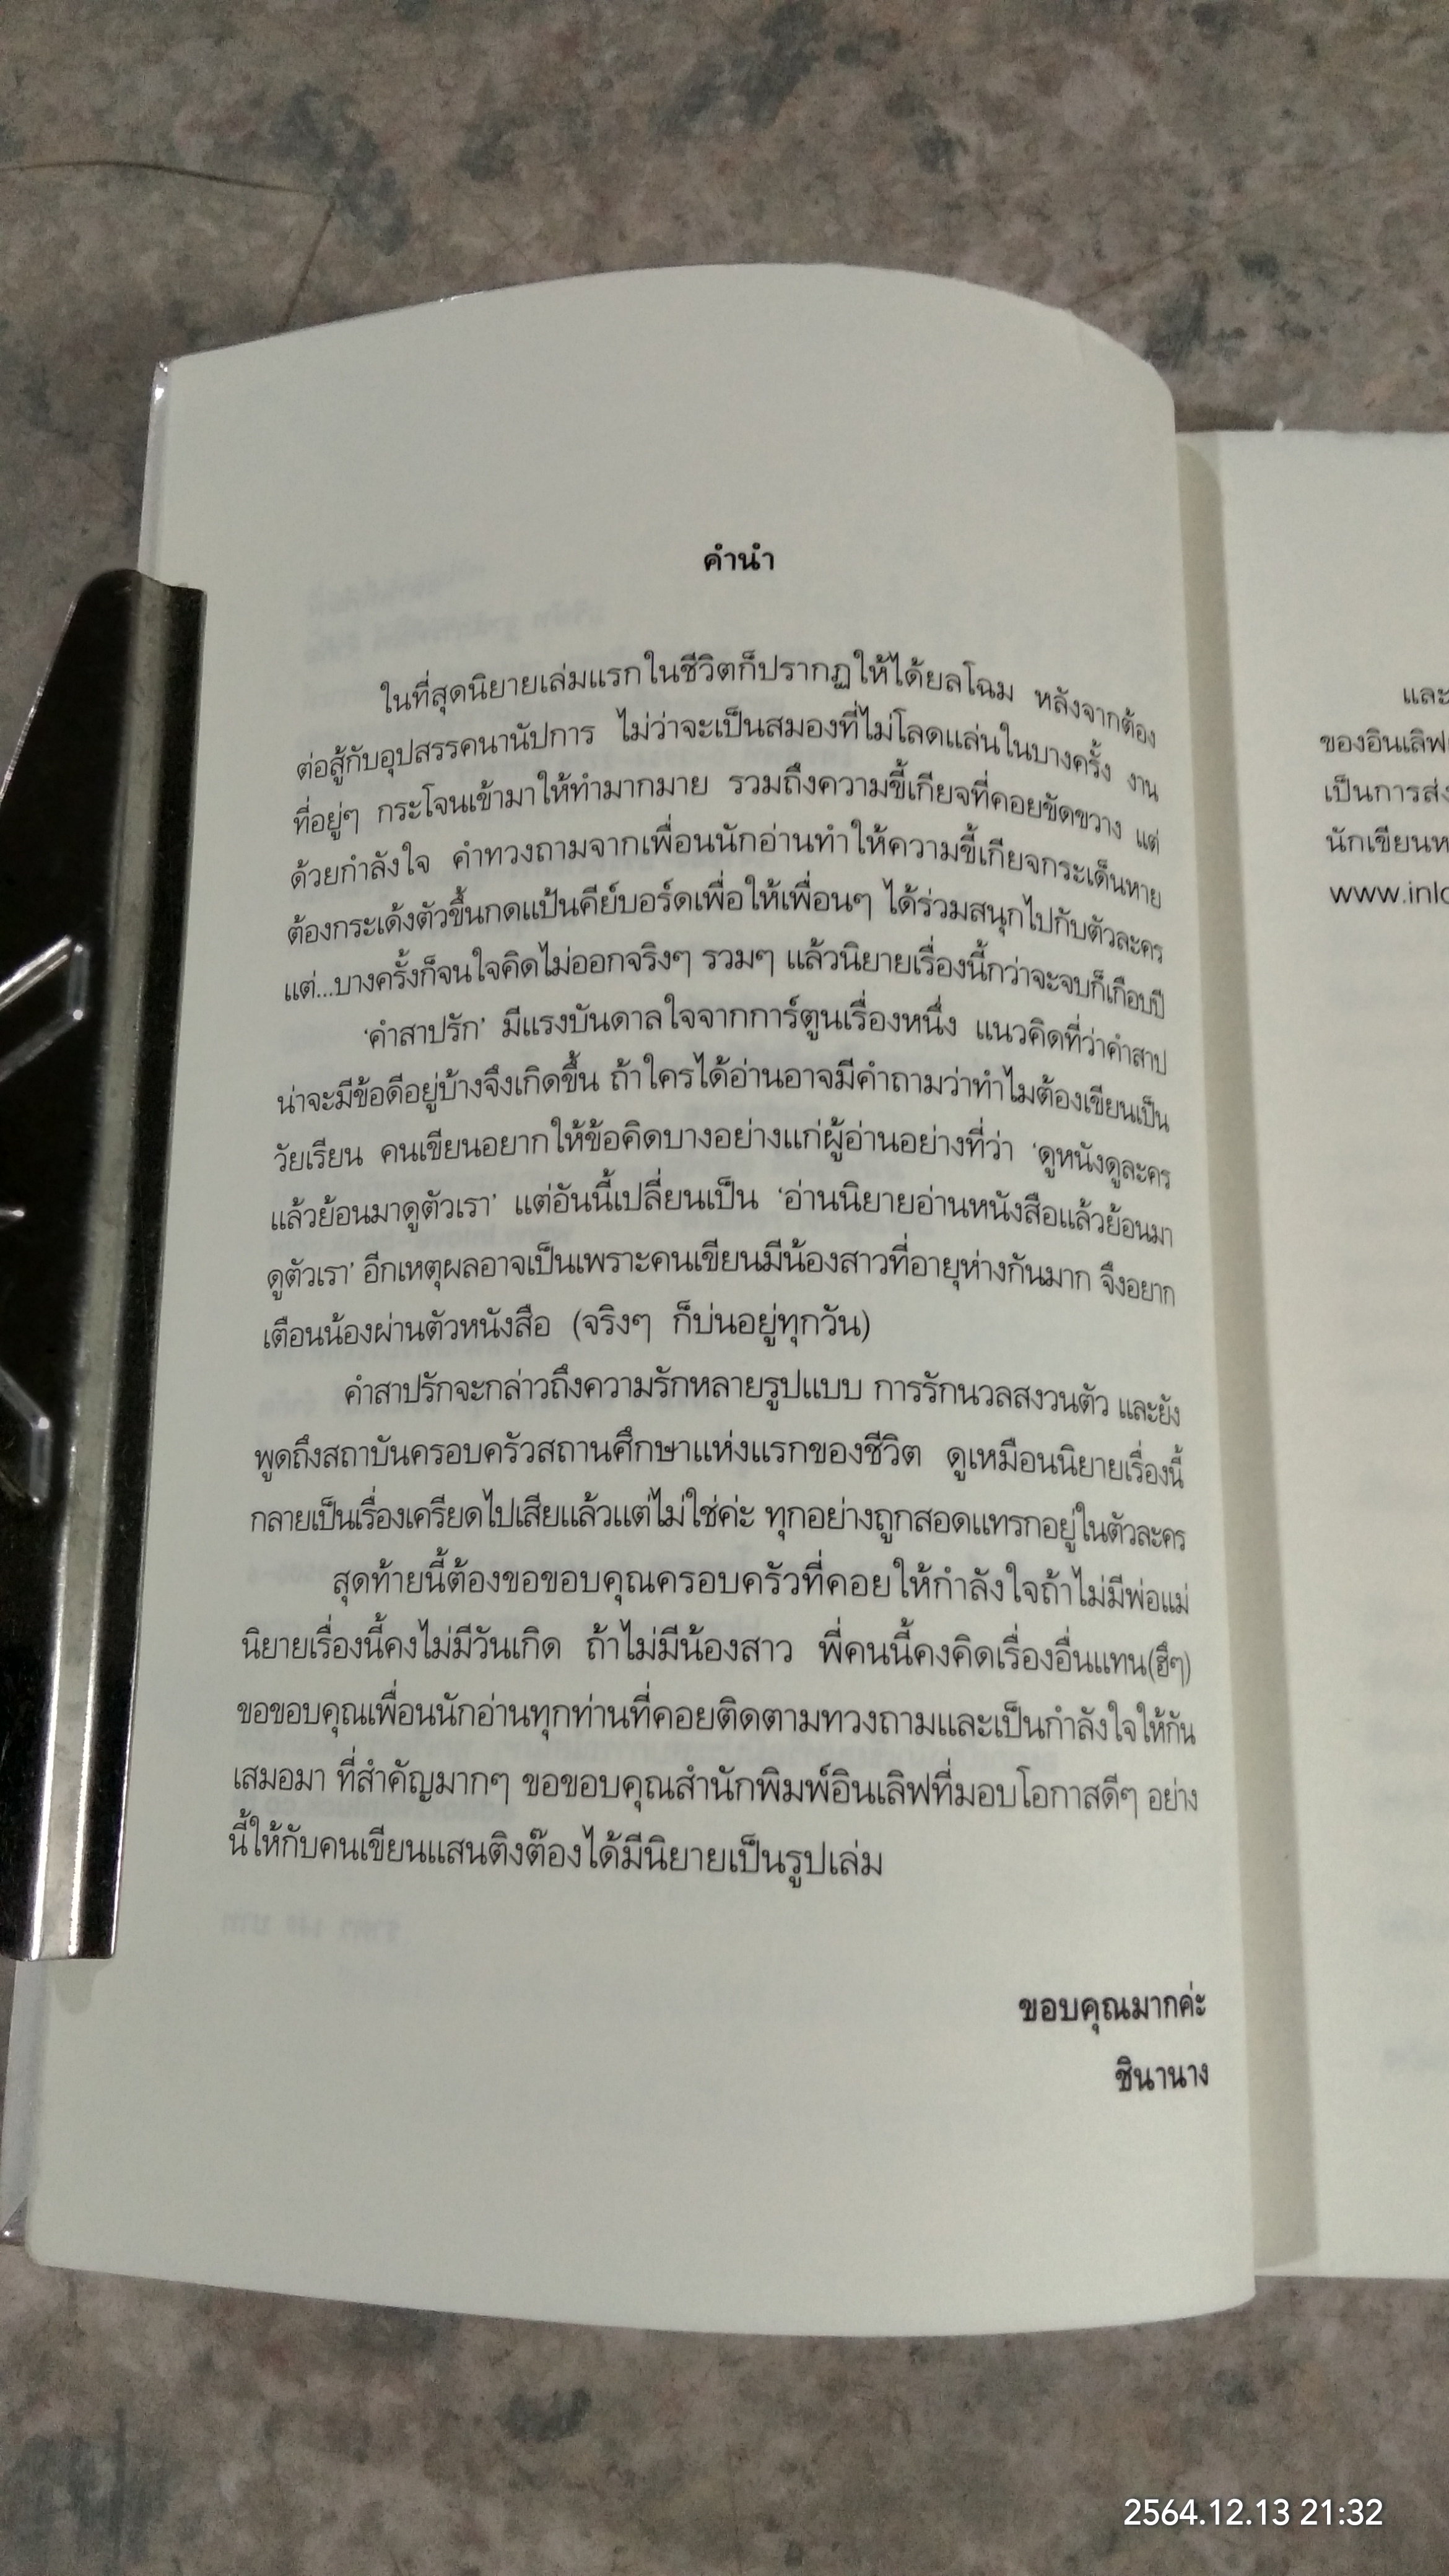 คำนำ
ในที่สุดนิยายเล่มแรกในชีวิตก็ปรากฏให้ได้ยลโฉม หลังจากต้อง
ต่อสู้กับอุปสรรคนานัปการ ไม่ว่าจะเป็นสมองที่ไม่โลดแล่นในบางครั้ง งาน
ที่อยู่ๆ กระโจนเข้ามาให้ทำมากมาย รวมถึงความขี้เกียจที่คอยขัดขวาง แต่
ด้วยกำลังใจ คำทวงถามจากเพื่อนนักอ่านทำให้ความขี้เกียจกระเด็นหาย
ต้องกระเด้งตัวขึ้นกดแป้นคีย์บอร์ดเพื่อให้เพื่อนๆ ได้ร่วมสนุกไปกับตัวละคร
แต่...บางครั้งก็จนใจคิดไม่ออกจริงๆ รวมๆ แล้วนิยายเรื่องนี้กว่าจะจบก็เกือบปี
'คำสาปรัก' มีแรงบันดาลใจจากการ์ตูนเรื่องหนึ่ง แนวคิดที่ว่าคำสาป
น่าจะมีข้อดีอยู่บ้างจึงเกิดขึ้น ถ้าใครได้อ่านอาจมีคำถามว่าทำไมต้องเขียนเป็น
วัยเรียน คนเขียนอยากให้ข้อคิดบางอย่างแก่ผู้อ่านอย่างที่ว่า 'ดูหนังดูละคร
แล้วย้อนมาดูตัวเรา' แต่อันนี้เปลี่ยนเป็น 'อ่านนิยายอ่านหนังสือแล้วย้อนมา
ดูตัวเรา' อีกเหตุผลอาจเป็นเพราะคนเขียนมีน้องสาวที่อายุห่างกันมาก จึงอยาก
เตือนน้องผ่านตัวหนังสือ (จริงๆ ก็บ่นอยู่ทุกวัน)
คำสาปรักจะกล่าวถึงความรักหลายรูปแบบ การรักนวลสงวนตัว และยัง
พูดถึงสถาบันครอบครัวสถานศึกษาแห่งแรกของชีวิต ดูเหมือนนิยายเรื่องนี้
กลายเป็นเรื่องเครียดไปเสียแล้วแต่ไม่ใช่ค่ะ ทุกอย่างถูกสอดแทรกอยู่ในตัวละคร
สุดท้ายนี้ต้องขอขอบคุณครอบครัวที่คอยให้กำลังใจถ้าไม่มีพ่อแม่
นิยายเรื่องนี้คงไม่มีวันเกิด ถ้าไม่มีน้องสาว พี่คนนี้คงคิดเรื่องอื่นแทน(ฮึๆ)
ขอขอบคุณเพื่อนนักอ่านทุกท่านที่คอยติดตามทวงถามและเป็นกำลังใจให้กัน
เสมอมา ที่สำคัญมากๆ ขอขอบคุณสำนักพิมพ์อินเลิฟที่มอบโอกาสดีๆ อย่าง
นี้ให้กับคนเขียนแสนติงต๊องได้มีนิยายเป็นรูปเล่ม
ขอบคุณมากค่ะ
ชินานาง
และ
ของอินเลิฟ
เป็นการส่ง
นักเขียน
2564.12.13 21:32